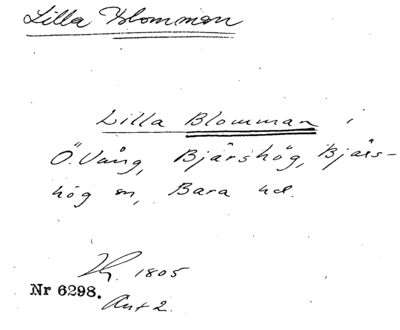 Lilla Blomman
Lilla Blomman i
Ö. Vång, Bjärshög, Bjärs-
hög sn, Bara hd.
1805
Nr 6298.
Akt 2.